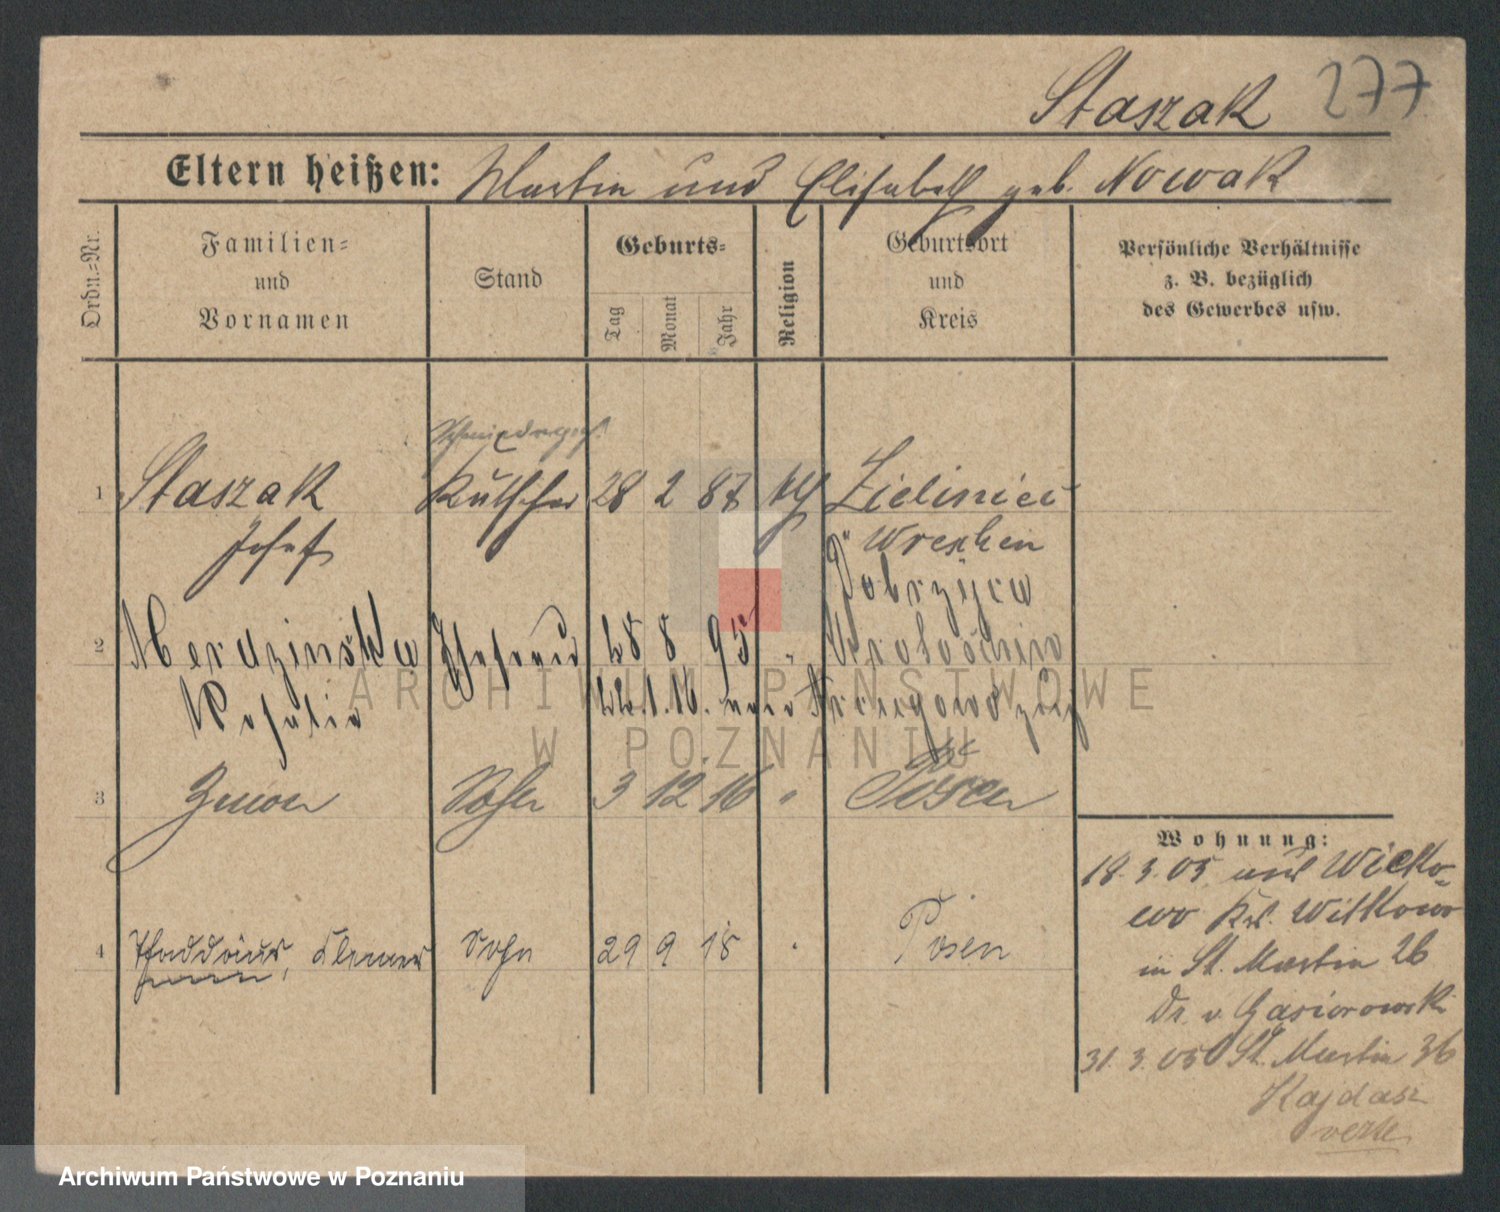 Staszak 277
Eltern heißen: Martin und Elisabeth geb. Nowak
Ordn.=Nr.
Familien=
und
Vornamen
Stand
Geburts=
Tag
Monat
Jahr
Religion
Geburtsort
und
Kreis
Persönliche Verhältnisse
z. B. bezüglich
des Gewerbes usw.
1 Staszak Kutscher 28 2 87 kth Zieliniec
Josef Wreschen
Dobrzyca
2 Ehefrau 28 8 95 " Krotoschin
22.1.16.
3 Zenon Sohn 3 12 16 " Posen
4 Thaddäus, Clemens Sohn 29 9 18 " Posen
Wohnung:
18.3.05 aus Witko-
wo Krs. Witkowo
in St. Martin 26
Dr. v. Gasiorowski
31.3.05 St. Martin 36
Kajdasz
verte
ARCHIWUM PAŃSTWOWE
W POZNANIU
Archiwum Państwowe w Poznaniu